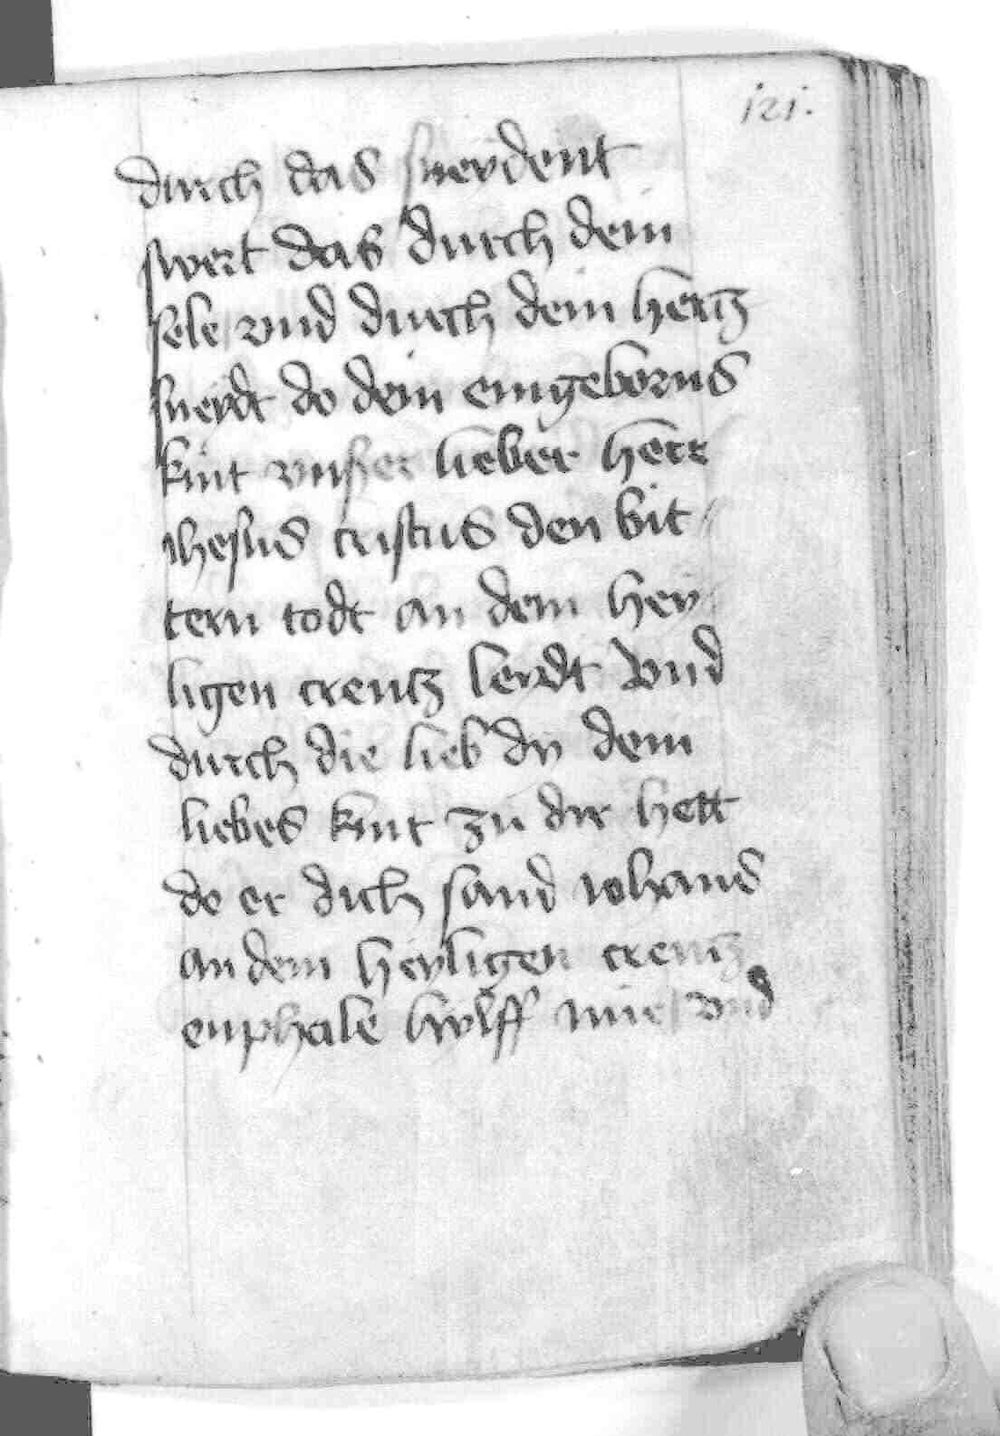 121.
durch das sneydent
swert das durch dein
sele vnd durch dein hertz
sneydt do dein eingeborns
kint vnser lieber herr
ihesus cristus den bit
tern todt an dem hey
ligen creutz leydt Vnd
durch die lieb dy dein
liebes kint zu dir hett
do er dich sand iohans
an dem heyligen creutz
enphale hylff mir vnd